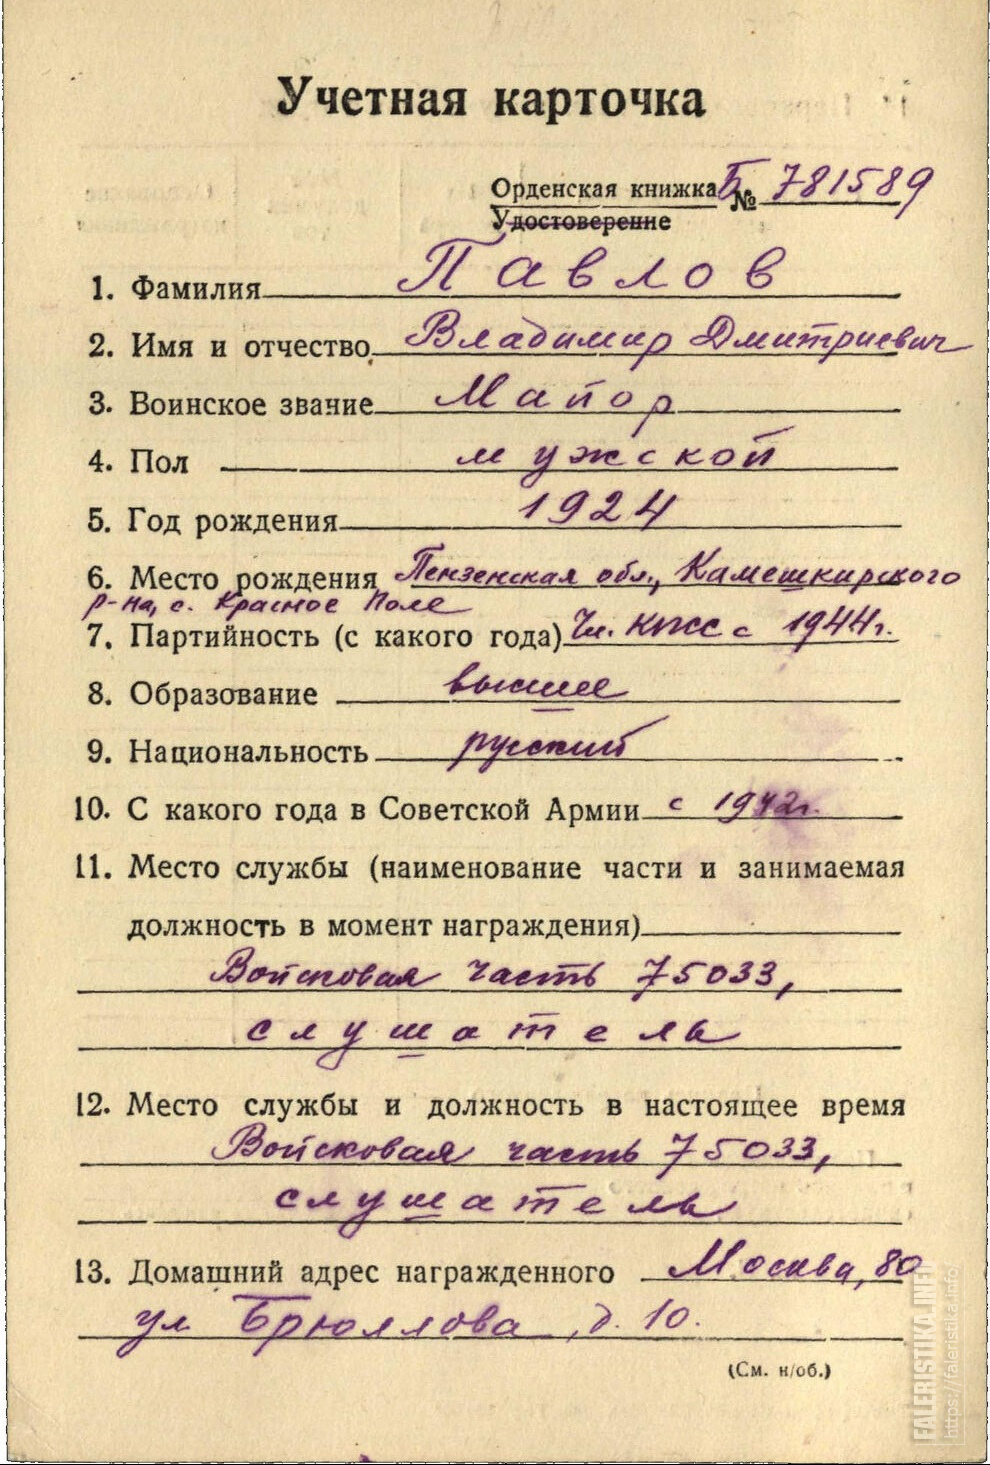 Учетная карточка
Орденская книжка Б № 781589
Удостоверение
1. Фамилия Павлов
2. Имя и отчество Владимир Дмитриевич
3. Воинское звание Майор
4. Пол мужской
5. Год рождения 1924
6. Место рождения Пензенская обл., Камешкирского
р-на, с. Красное Поле
7. Партийность (с какого года) Чл. КПСС с 1944г.
8. Образование высшее
9. Национальность русский
10. С какого года в Советской Армии с 1942г.
11. Место службы (наименование части и занимаемая
должность в момент награждения)
Войсковая часть 75033,
слушатель
12. Место службы и должность в настоящее время
Войсковая часть 75033,
слушатель
13. Домашний адрес награжденного Москва, 80
ул Брюллова, д. 10.
(См. н/об.)
FALERISTIKA.INFO
https://faleristika.info